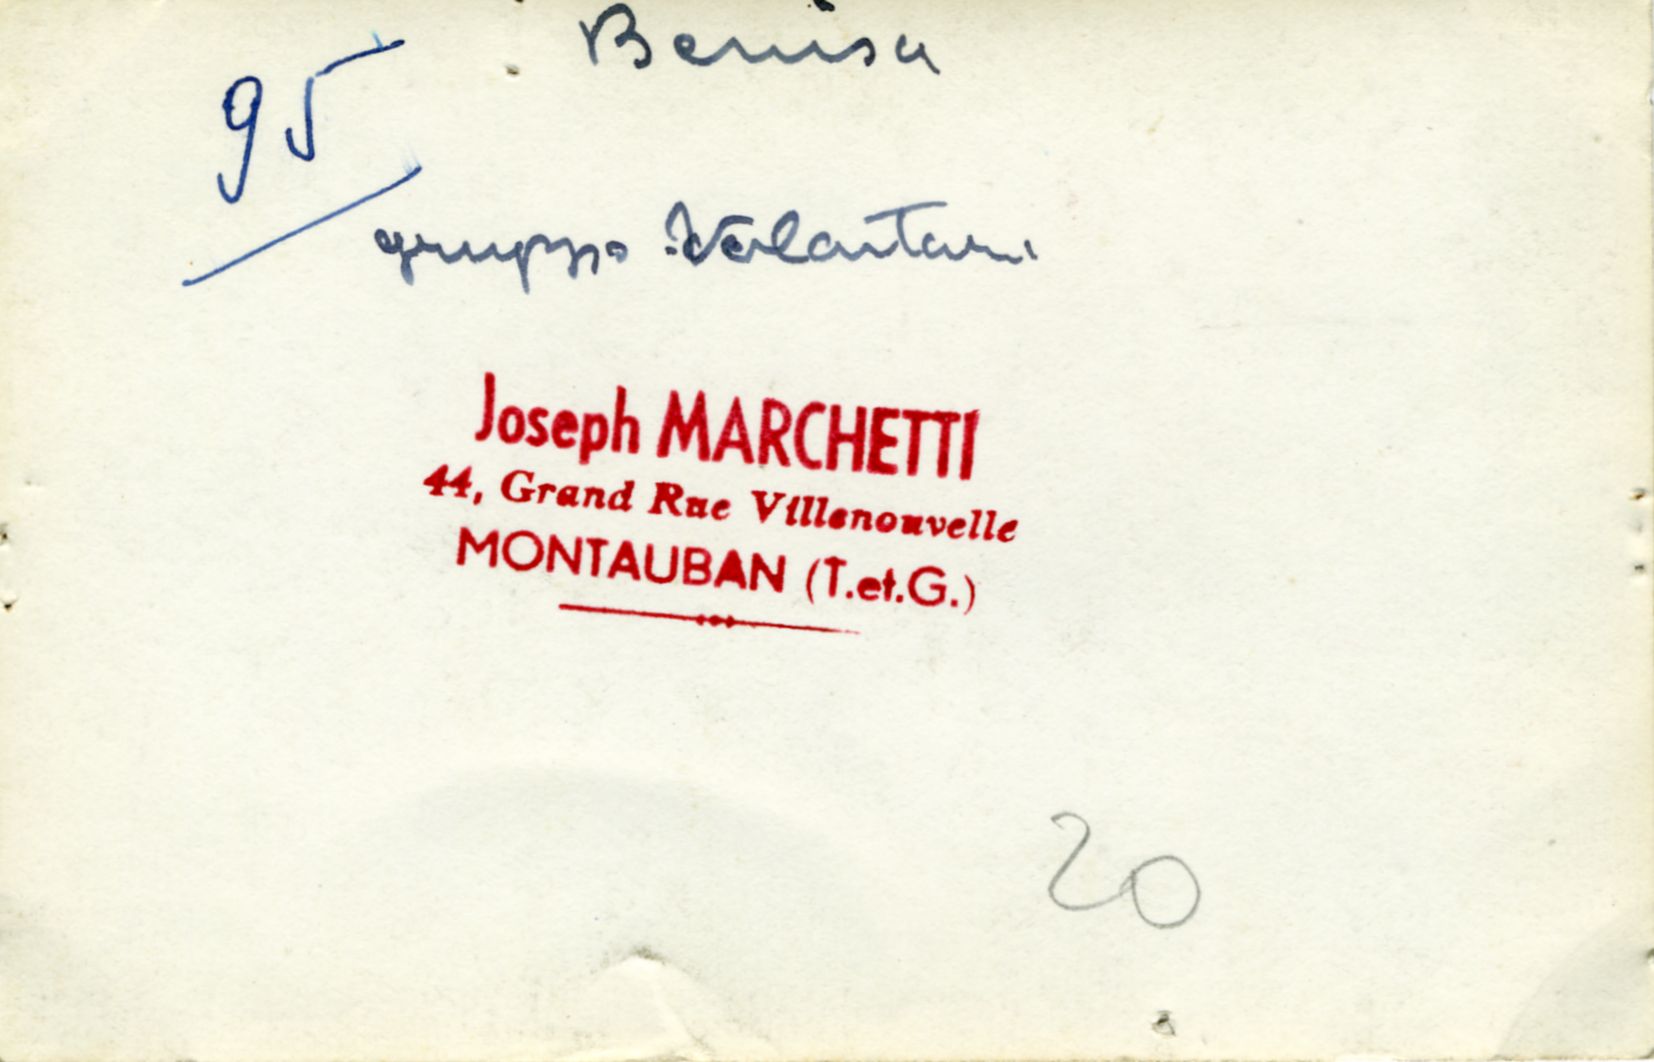 Benisa
95
gruppo Volontari
Joseph MARCHETTI
44, Grand Rue Villenouvelle
MONTAUBAN (T.et.G.)
20